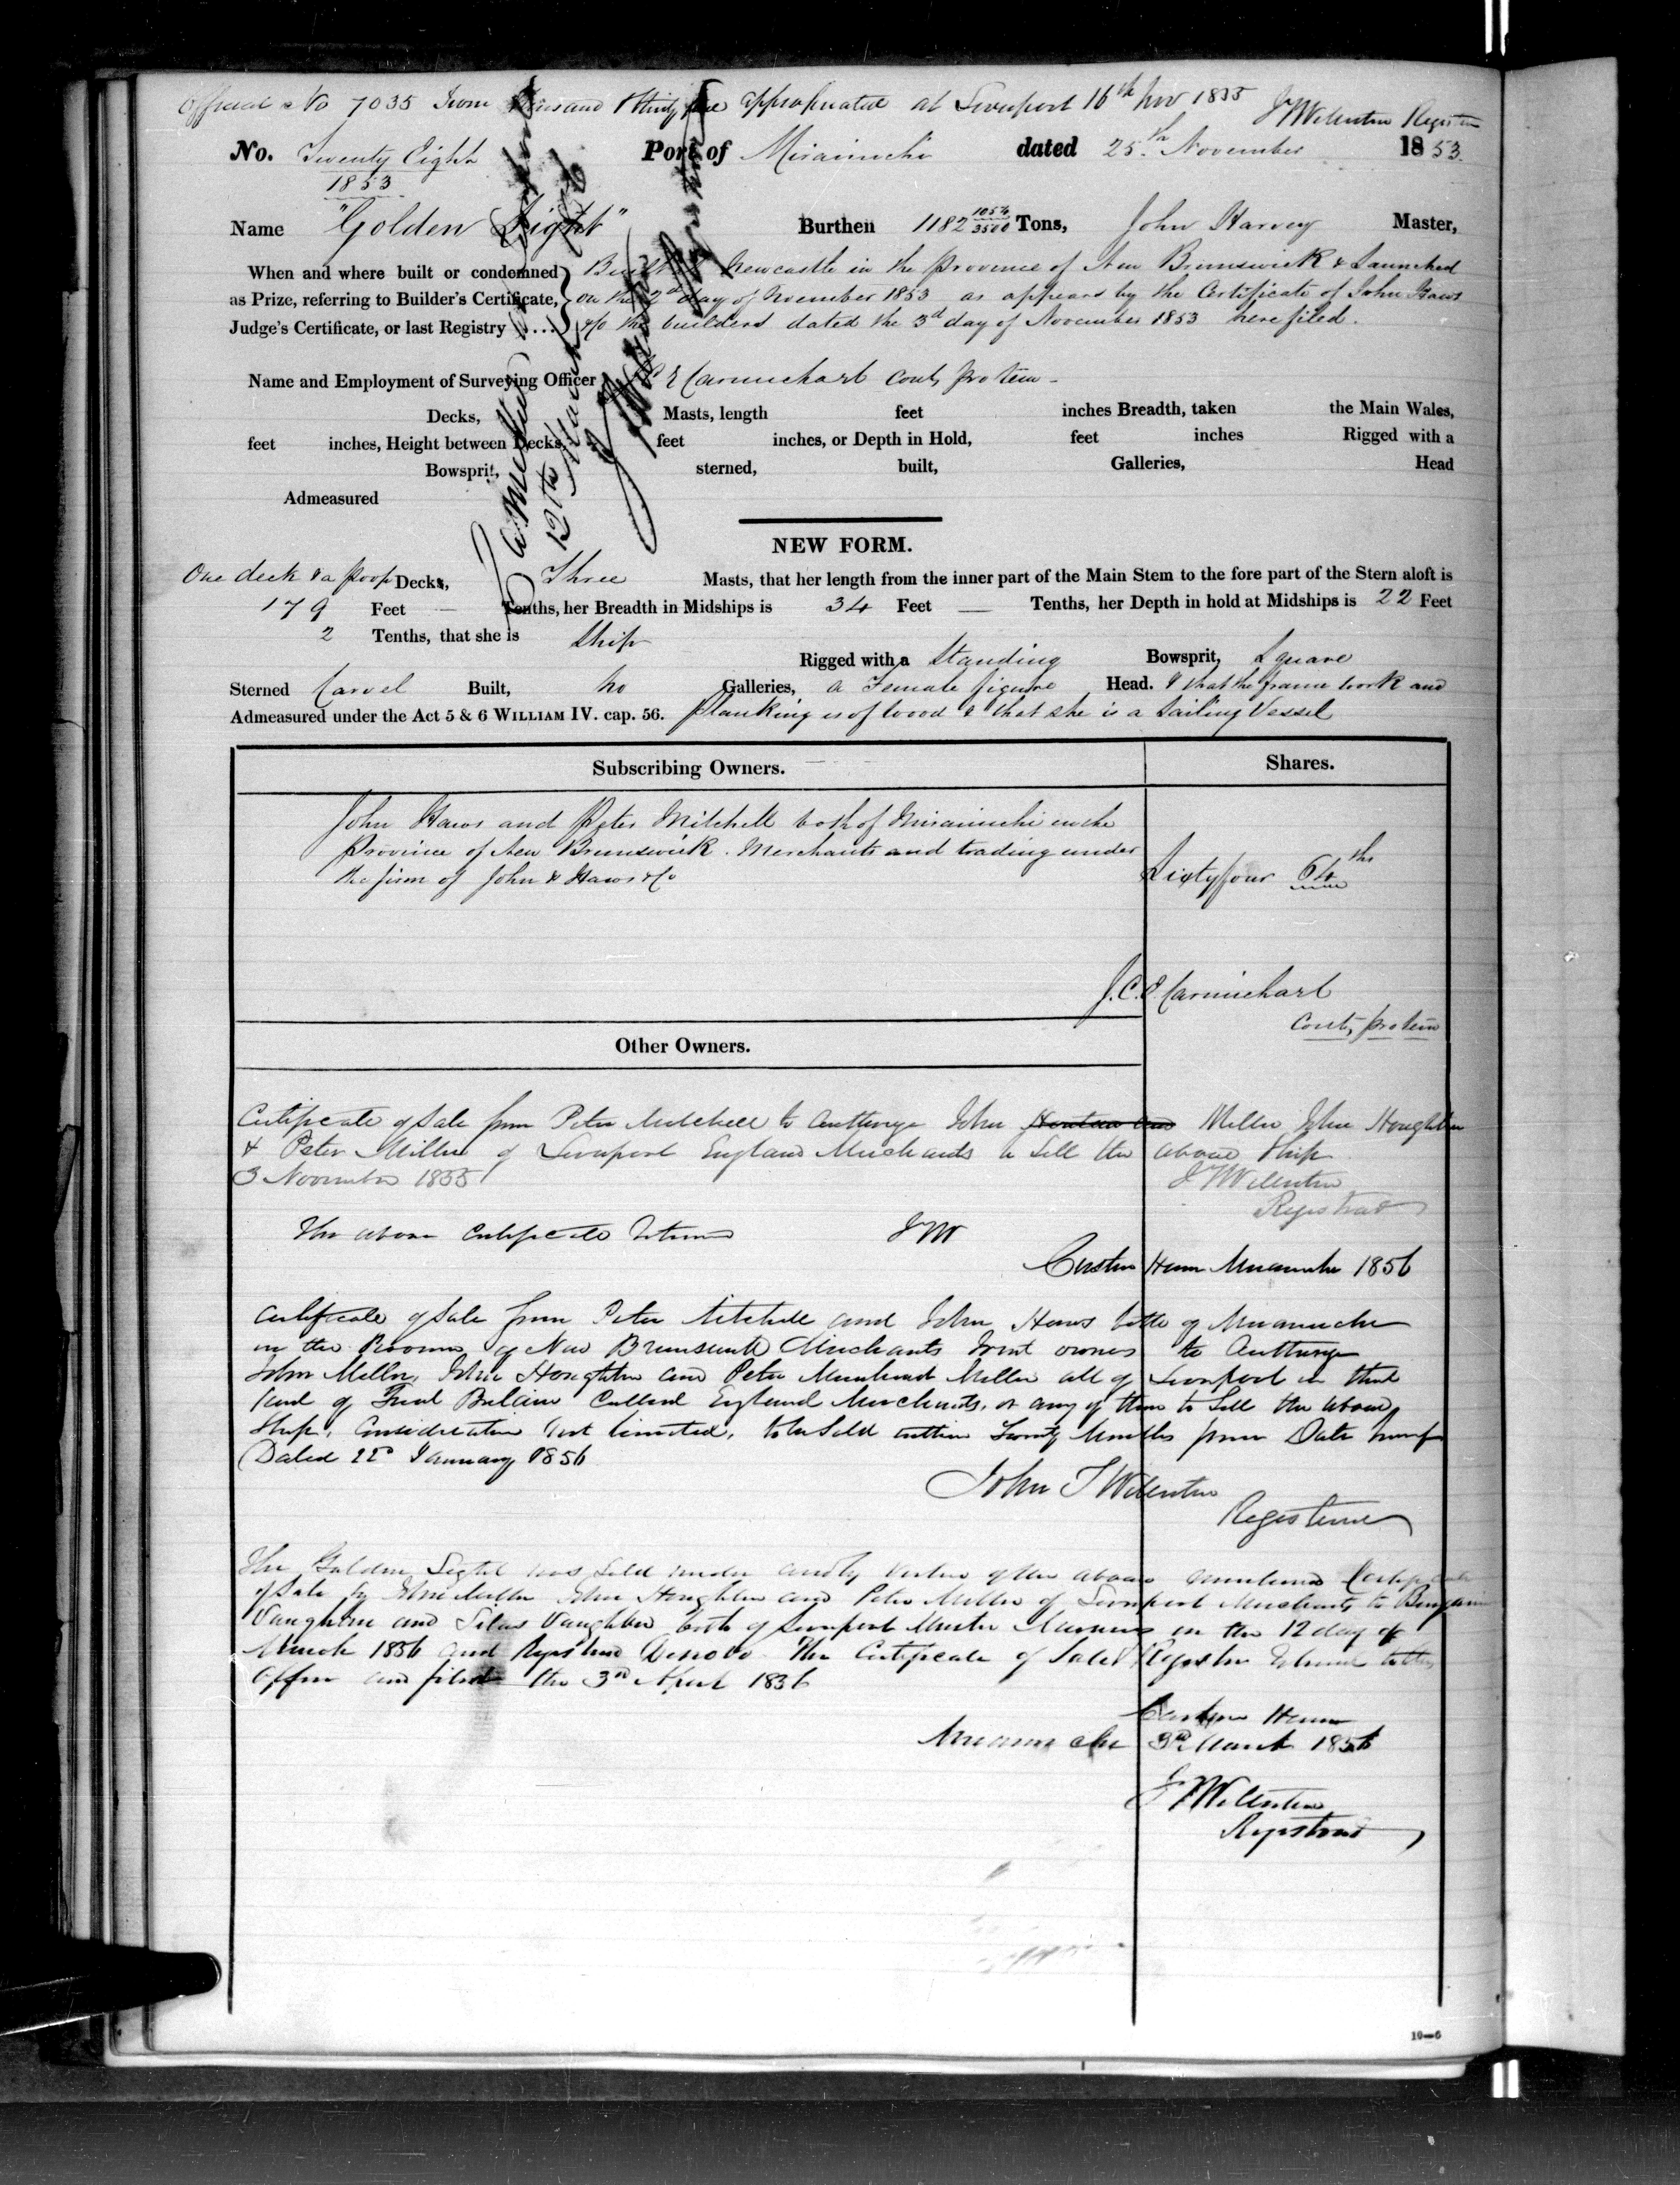 Official No 7035 Seven thousand & thirty five appropriated at Liverpool 16th Nov 1855
J T Williston Registrar
No. Twenty Eight Port of Miramichi dated 25th November 1853.
1853
Name "Golden Light" Burthen 1182 1054/3500 Tons, John Harvey Master,
When and where built or condemned Built at Newcastle in the Province of New Brunswick & Launched
as Prize, referring to Builder's Certificate, on the 2d day of November 1853 as appears by the Certificate of John Haws
Judge's Certificate, or last Registry .... &/o the builders dated the 3d day of November 1853 here filed.
Name and Employment of Surveying Officer Carmichael Cont, protem
Decks, Masts, length feet inches Breadth, taken the Main Wales,
feet inches, Height between Decks, feet inches, or Depth in Hold, feet inches Rigged with a
Bowsprit, sterned, built, Galleries, Head
Admeasured
12th March
NEW FORM.
One deck & a poop Decks, Three Masts, that her length from the inner part of the Main Stem to the fore part of the Stern aloft is
179 Feet — Tenths, her Breadth in Midships is 34 Feet — Tenths, her Depth in hold at Midships is 22 Feet
2 Tenths, that she is Ship
Rigged with a Standing Bowsprit, Square
Sterned Carvel Built, no Galleries, a Female figure Head. & that the frame work and
Admeasured under the Act 5 & 6 WILLIAM IV. cap. 56. planking is of wood & that she is a Sailing Vessel
Subscribing Owners. Shares.
John Haws and Peter Mitchell both of Miramichi in the
Province of New Brunswick. Merchants and trading under
the firm of John Haws & Co
Sixty four 64ths
J. C. E Carmichael
Cont, protem
Other Owners.
Certificate of Sale from Peter Mitchell to Authorize John Miller John Houghton
& Peter Miller of Liverpool England Merchants to Sell the above Ship
3 November 1855 J T Williston
Registrar
The above Certificate Returned JTW
Custom House Miramichi 1856
Certificate of Sale from Peter Mitchell and John Haws both of Miramichi
in the Province of New Brunswick Merchants Joint owners to Authorize
John Miller, John Houghton and Peter Miller all of Liverpool in that
part of Great Britain Called England Merchants, or any of them to Sell the above
Ship, Consideration not limited, to be Sold within Twenty Months from Date hereof
Dated 22d January 1856
John T Williston
Registrar
The Golden Light was Sold under and by Virtue of the above mentioned Certificate
of Sale by John Miller John Houghton and Peter Miller of Liverpool Merchants to Benjamin
Vaughan and Silas Vaughan both of Liverpool Master Mariners on the 12 day of
March 1856 and Registered Denovo The Certificate of Sale & Register Returned to this
Office and filed the 3rd April 1856
Custom House
Miramichi 3rd March 1856
J T Williston
Registrar
10—6